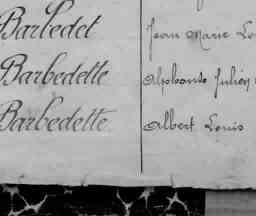 Barbedet Jean Marie
Barbedette Alphonse Julien
Barbedette Albert Louis